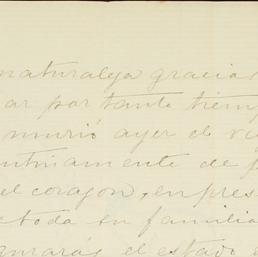 naturaleza gracias
ar por tanto tiemp
murió ayer el vi
ntinamente de
el corazon, en pres
toda su familia
el estado